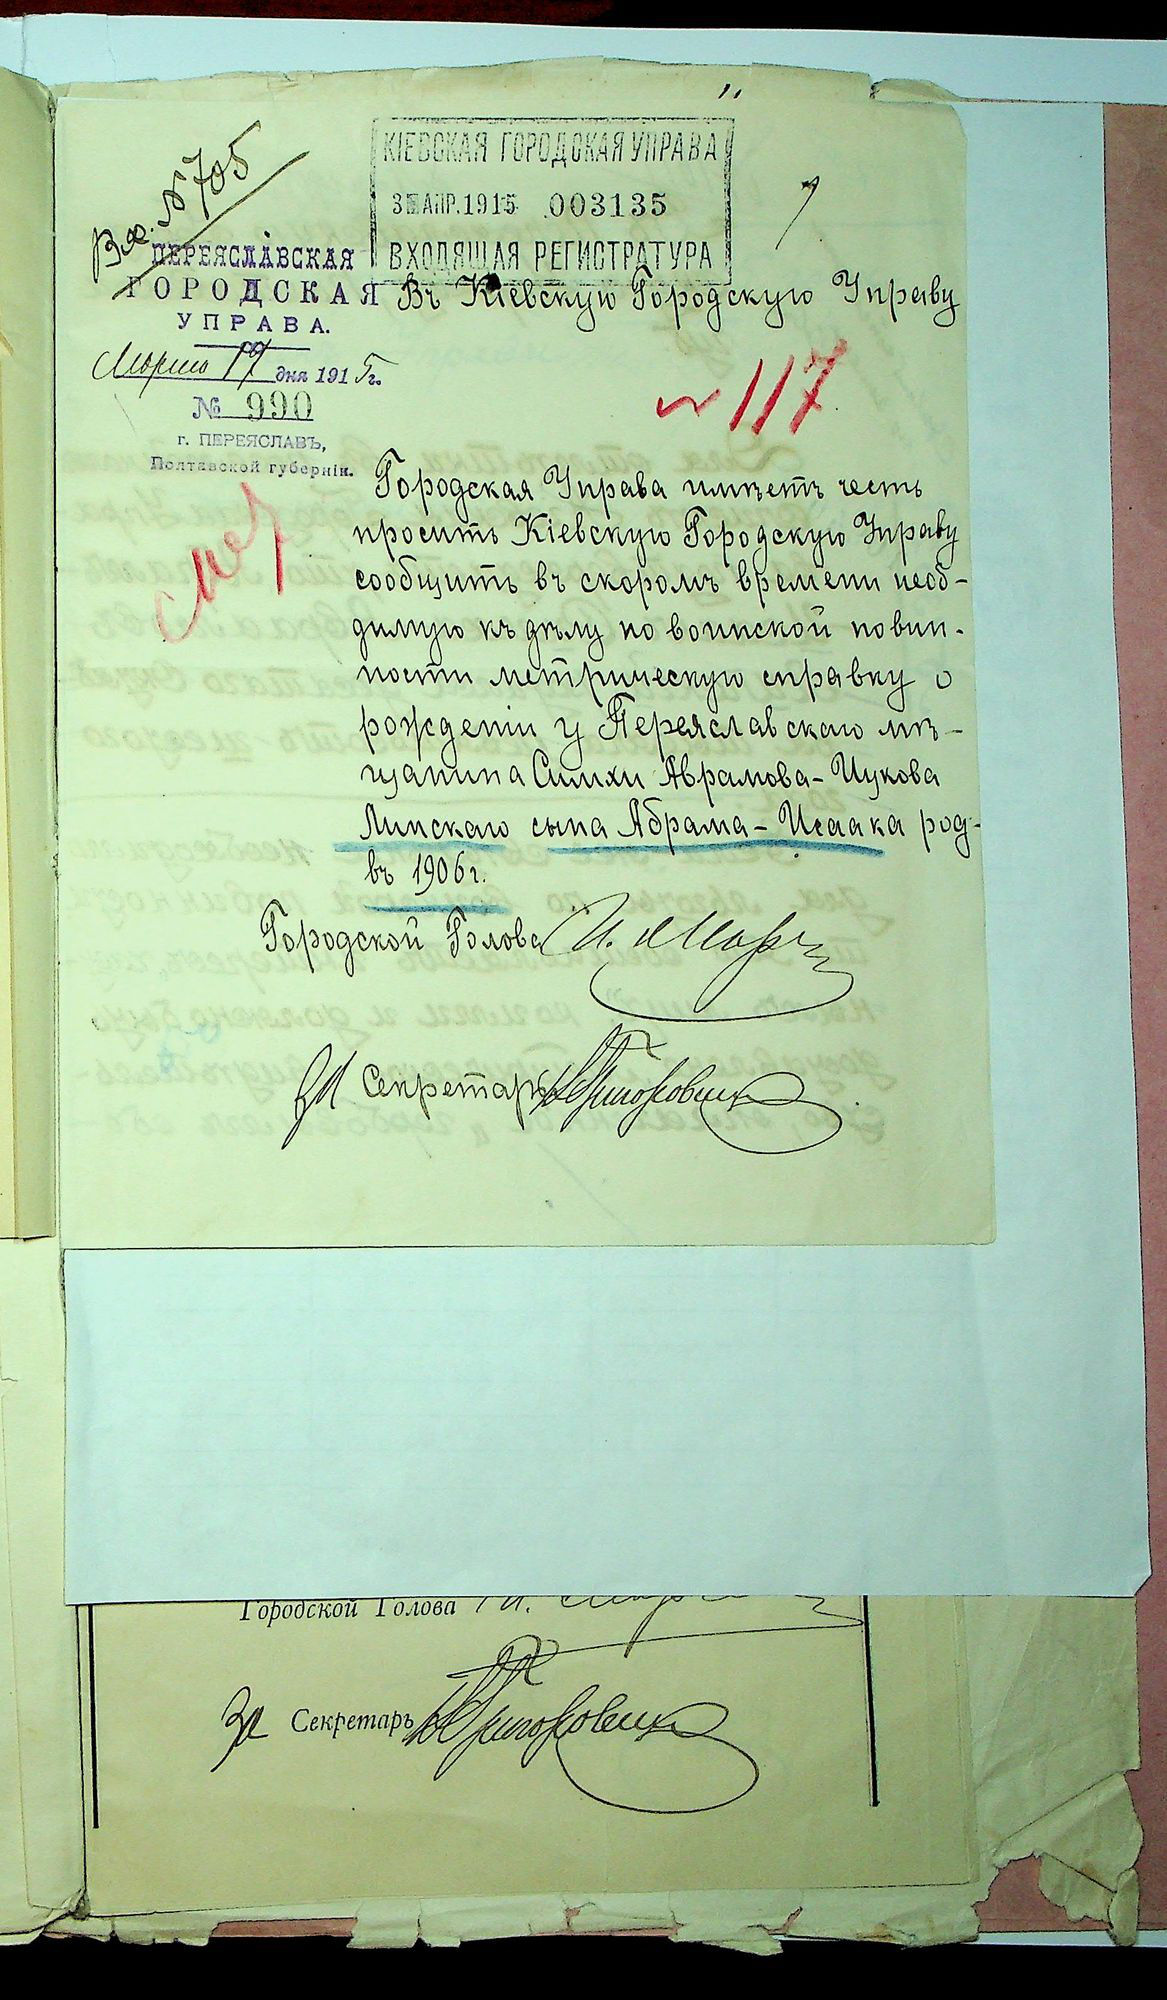 Вх. № 705
КІЕВСКАЯ ГОРОДСКАЯ УПРАВА
3 АПР. 1915 003135
ВХОДЯЩАЯ РЕГИСТРАТУРА
ПЕРЕЯСЛАВСКАЯ
ГОРОДСКАЯ
УПРАВА.
Марта 17 дня 1915 г.
№ 990
г. ПЕРЕЯСЛАВЪ,
Полтавской губерніи.
Въ Кіевскую Городскую Управу
117
Городская Управа имѣетъ честь
просить Кіевскую Городскую Управу
сообщить въ скоромъ времени необ-
димую къ дѣлу по воинской повин-
ности метрическую справку о
рожденіи у Переяславскаго мѣ-
щанина Симхи Аврамова-Ицкова
Линскаго сына Абрама-Исаака род-
въ 1906 г.
Городской Голова
За Секретарь Григорович
Городской Голова
За Секретарь Григорович